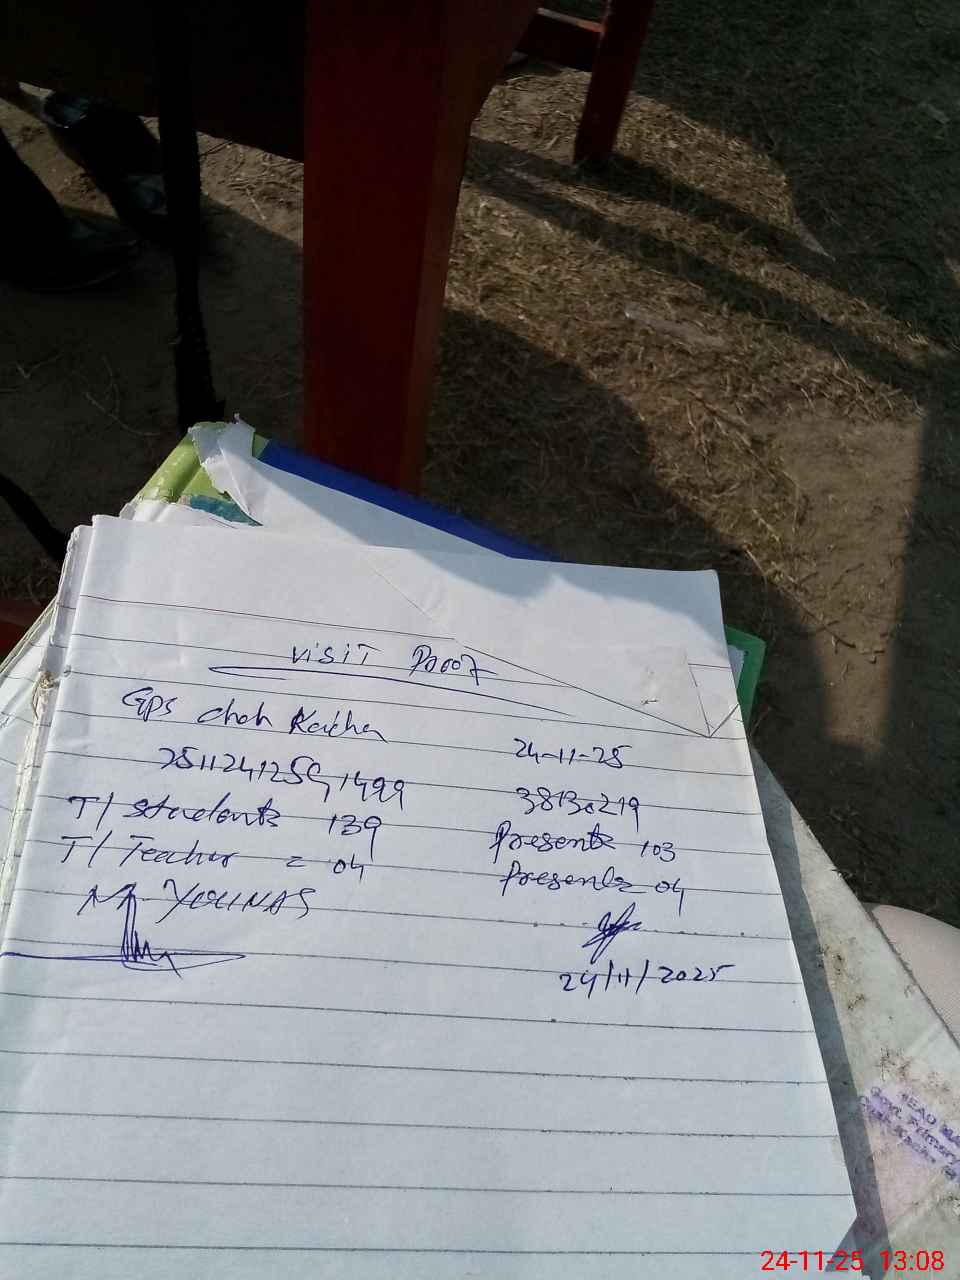 VISIT Proof
GPS chah Kacha
24-11-25
3813c219
T/ Students 139
Presents 103
T/ Teacher = 04
Presents 04
M. YOUNAS
24/11/2025
HEAD
Govt. Primary
24-11-25 13:08